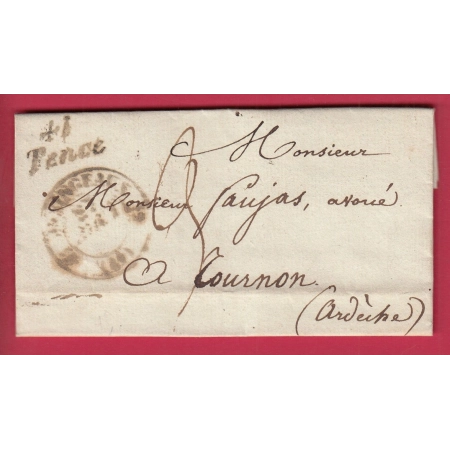 41
Tence
Monsieur
Monsieur Faujas, avoué
A Tournon.
(Ardèche)